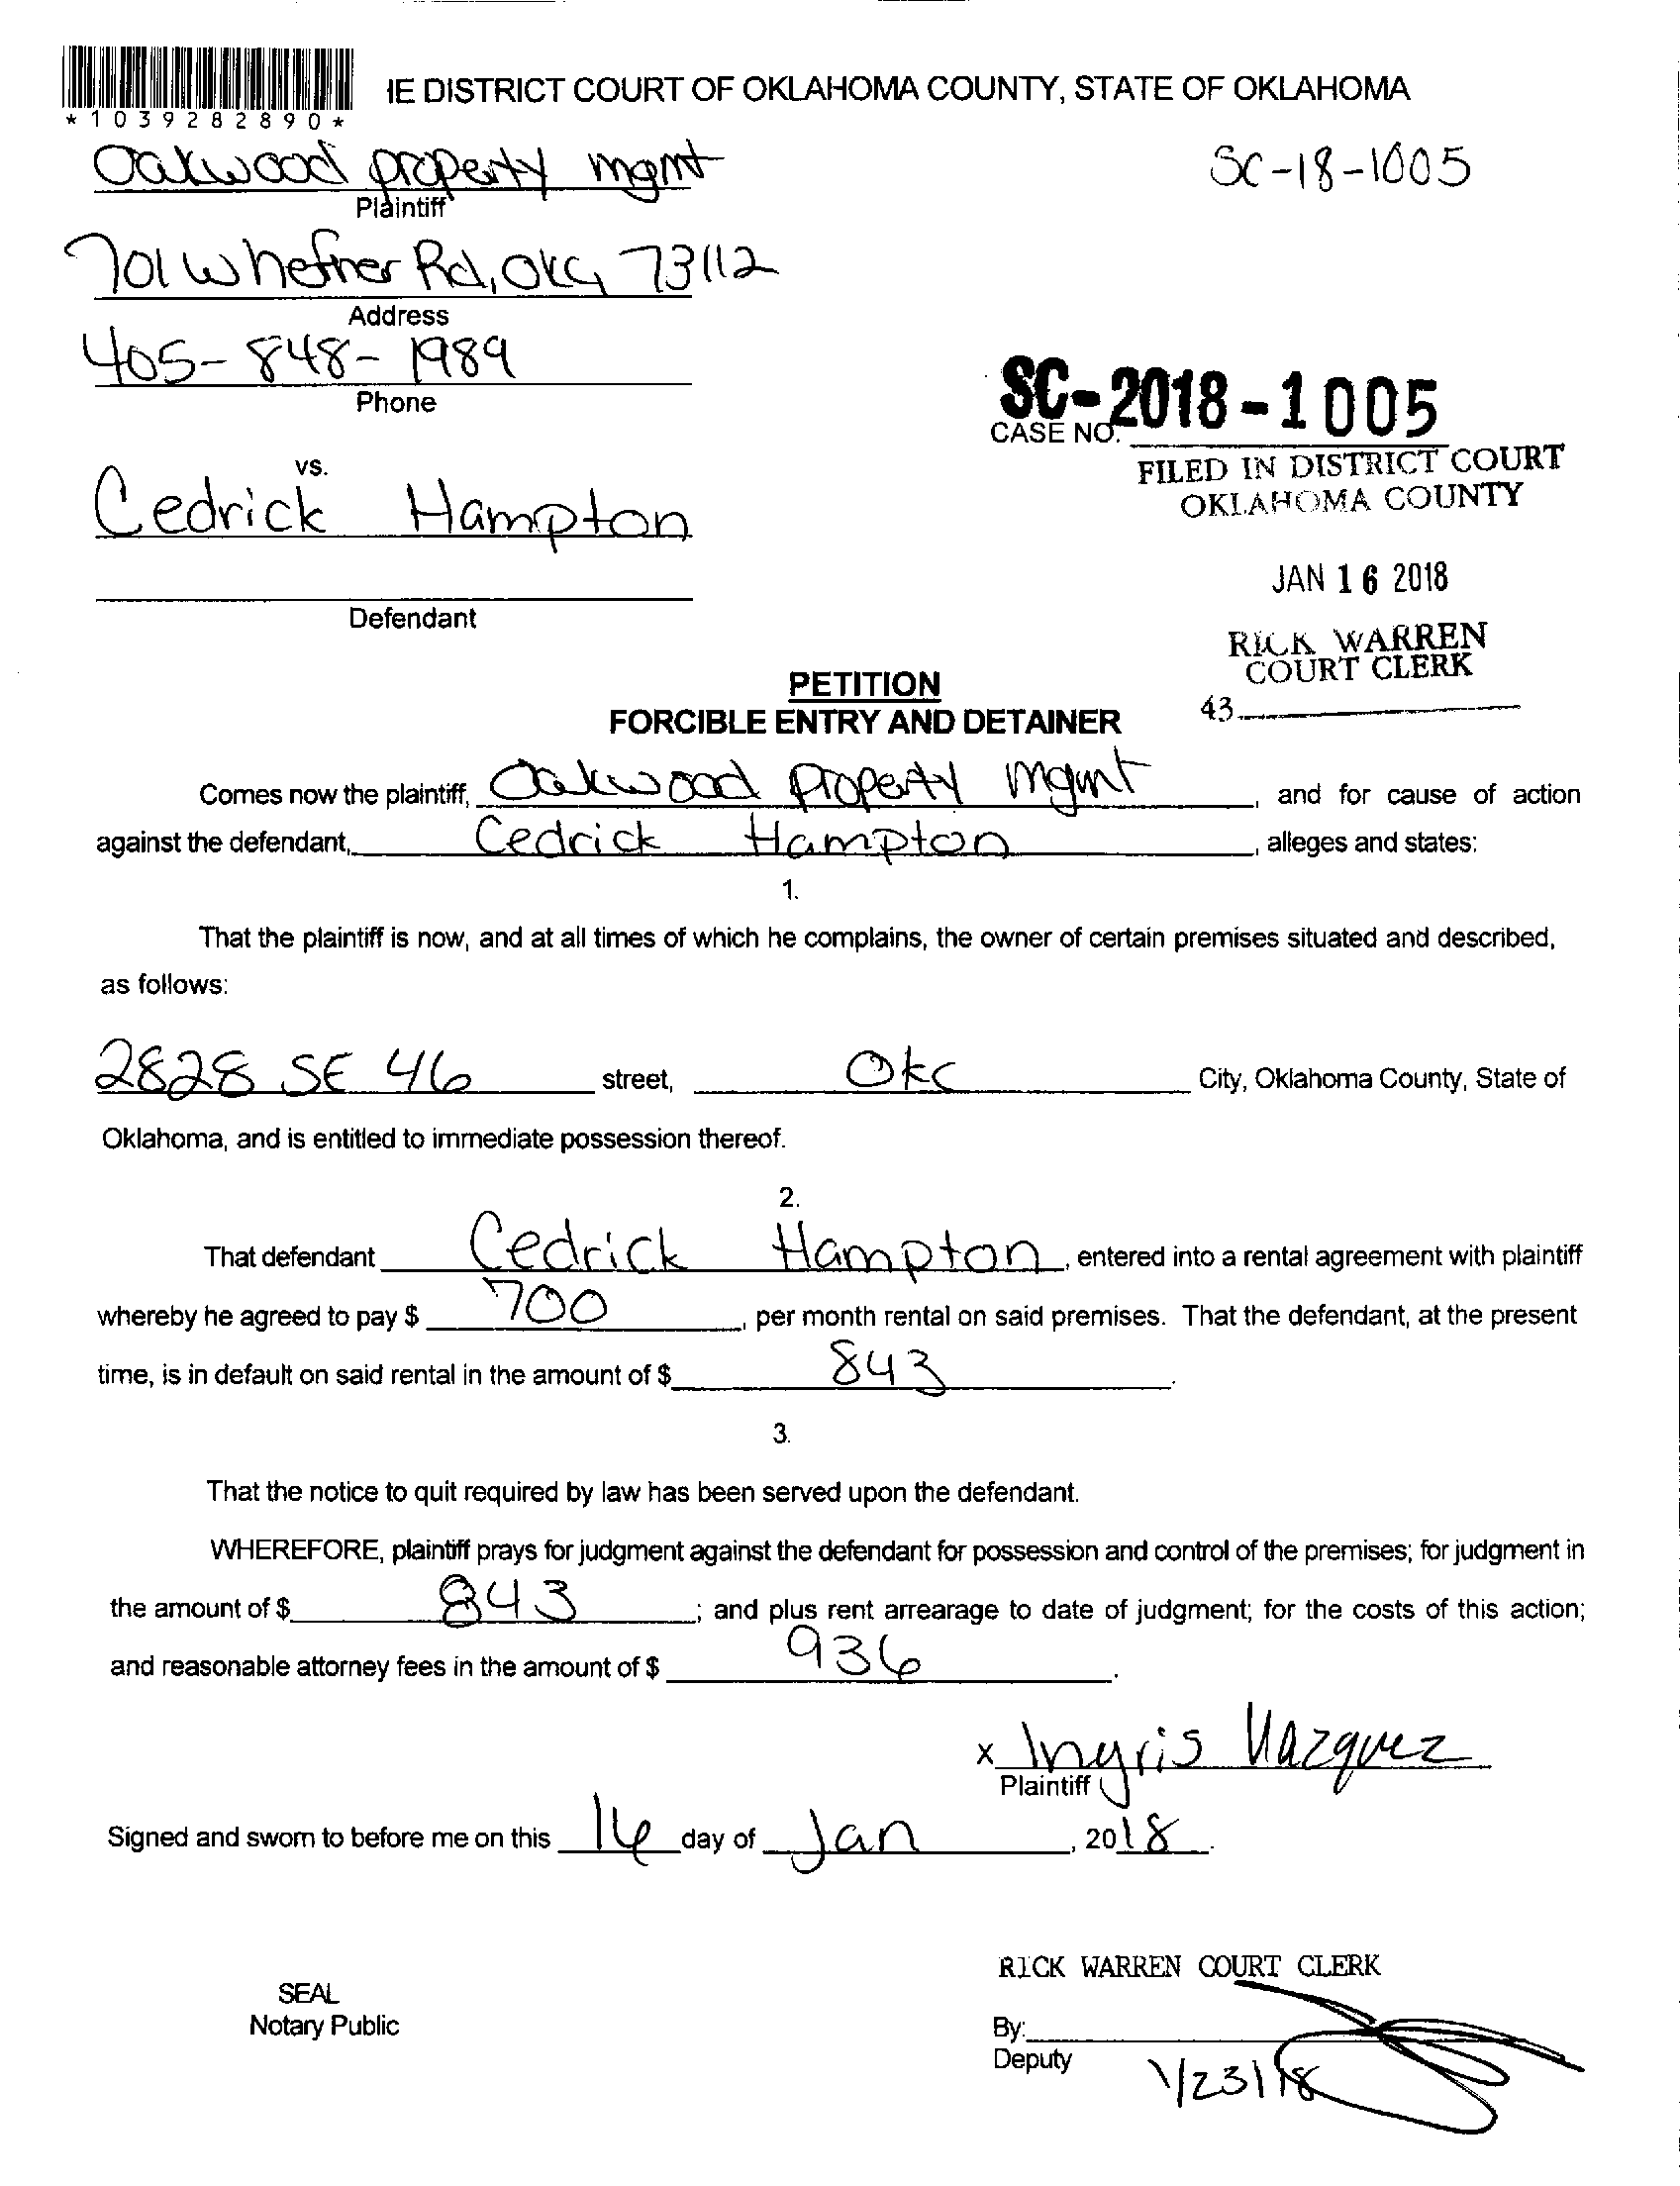 IE DISTRICT COURT OF OKLAHOMA COUNTY, STATE OF OKLAHOMA
*1039282890*
Oakwood property mgmt
SC-18-1005
Plaintiff
701 W hefner Rd, OKC, 73112
Address
405-848-1989
Phone
SC-2018-1005
CASE NO.
FILED IN DISTRICT COURT
OKLAHOMA COUNTY
vs.
Cedrick Hampton
JAN 16 2018
Defendant
RICK WARREN
COURT CLERK
43
PETITION
FORCIBLE ENTRY AND DETAINER
Comes now the plaintiff, Oakwood property mgmt, and for cause of action
against the defendant, Cedrick Hampton, alleges and states:
1.
That the plaintiff is now, and at all times of which he complains, the owner of certain premises situated and described,
as follows:
2828 SE 46 street, OKC City, Oklahoma County, State of
Oklahoma, and is entitled to immediate possession thereof.
2.
That defendant Cedrick Hampton, entered into a rental agreement with plaintiff
whereby he agreed to pay $ 700, per month rental on said premises. That the defendant, at the present
time, is in default on said rental in the amount of $ 843.
3.
That the notice to quit required by law has been served upon the defendant.
WHEREFORE, plaintiff prays for judgment against the defendant for possession and control of the premises; for judgment in
the amount of $ 843; and plus rent arrearage to date of judgment; for the costs of this action;
and reasonable attorney fees in the amount of $ 936.
x Ingris Vazquez
Plaintiff
Signed and sworn to before me on this 16 day of Jan, 2018.
RICK WARREN COURT CLERK
SEAL
Notary Public
By:
Deputy
1/23/18